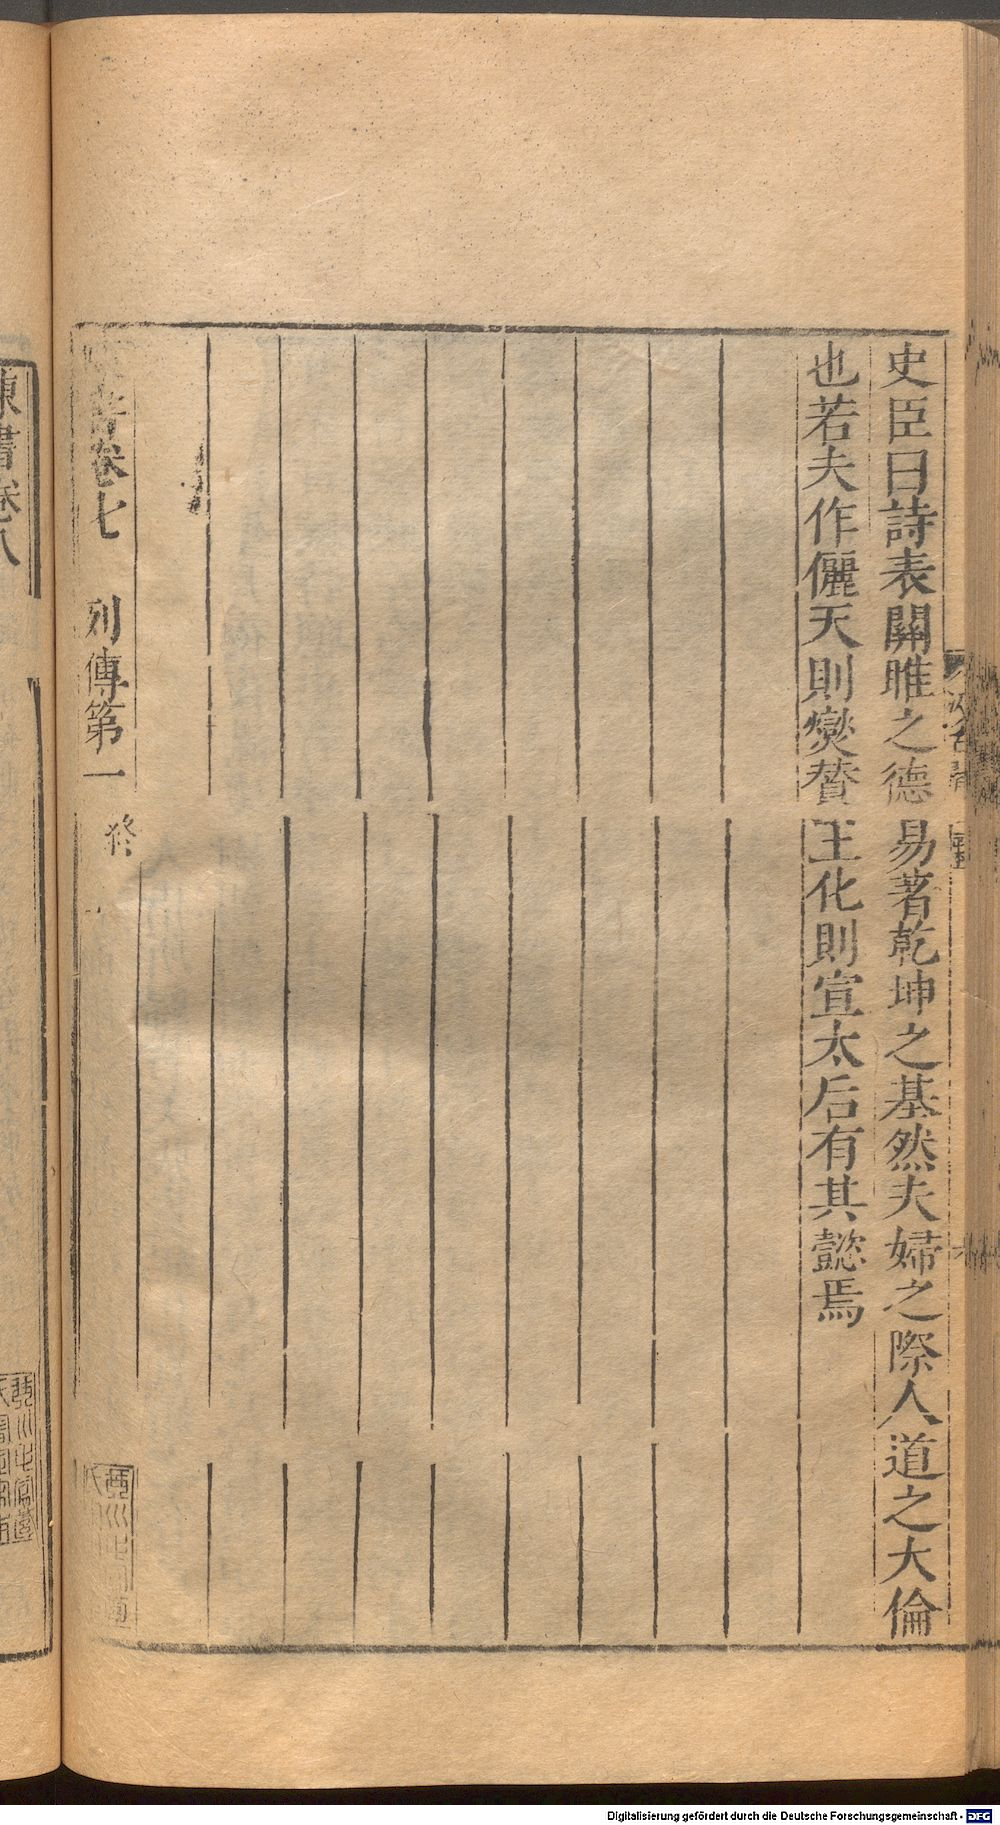 史臣曰詩表關雎之德易著乾坤之基然夫婦之際人道之大倫
也若夫作儷天則燮贊王化則宣太后有其懿焉
書卷七 列傳第一 終
陳書卷八
Digitalisierung gefördert durch die Deutsche Forschungsgemeinschaft - DFG